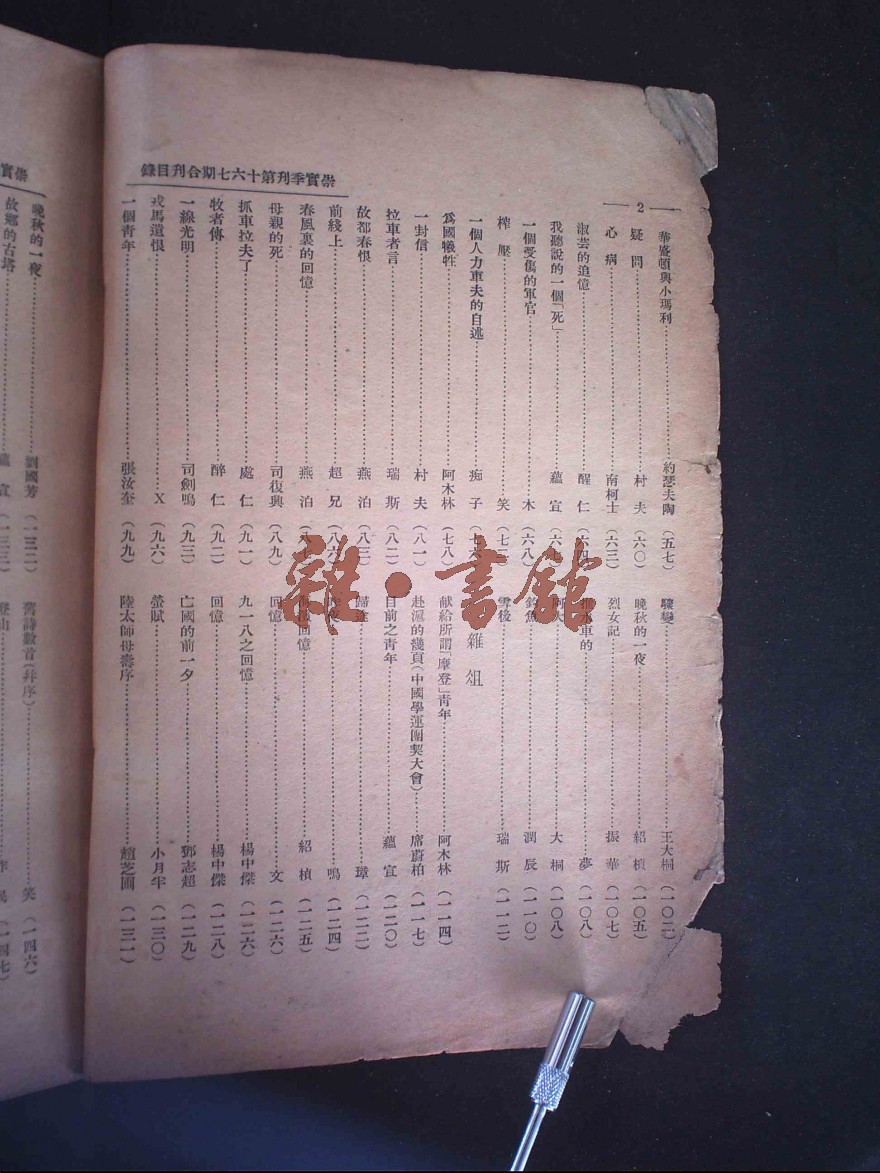 崇實季刊第十六七期合刊目錄
— 2 —
華盛頓與小瑪利……約瑟夫陶（五七）
疑問……村夫（六〇）
心病……南柯士（六三）
淑芸的追憶……醒仁（六四）
我聽說的一個「死」……蘊宣（六七）
一個受傷的軍官……木（六八）
榨壓……笑
一個人力車夫的自述……痴子
爲國犧牲……阿木林（七八）
一封信……村夫（八一）
拉車者言……瑞斯（八二）
故都春恨……燕泊（八三）
前綫上……超兄（八六）
春風裏的回憶……燕泊
母親的死……司復興（八九）
抓車拉夫了……處仁（九一）
牧者傳……醉仁（九二）
一線光明……司劍鳴（九三）
戎馬遺恨……X（九六）
一個青年……張汝奎（九九）
驟變……王大桐（一〇二）
晚秋的一夜……紹楨（一〇五）
烈女記……振華（一〇七）
水車的……夢（一〇八）
大桐（一〇八）
魚……潤辰（一一〇）
雪後……瑞斯（一一二）
雜俎
献給所謂「摩登」青年……阿木林（一一四）
赴滬的幾頁（中國學運團契大會）……席蔚柏（一一七）
目前之青年……蘊宣（一二〇）
歸途……璋（一二二）
鳴（一二四）
回憶……紹楨（一二五）
回憶……文（一二六）
九一八之回憶……楊中傑（一二六）
回憶……楊中傑（一二八）
亡國的前一夕……鄧志超（一二九）
螢賦……小月芈（一三〇）
陸太師母壽序……趙芝圃（一三一）
崇實
晚秋的一夜……劉國芳（一三二）
故鄉的古塔……蘊宣（一三三）
舊詩數首（幷序）……笑（一四六）
登山……（一四七）
雜·書館